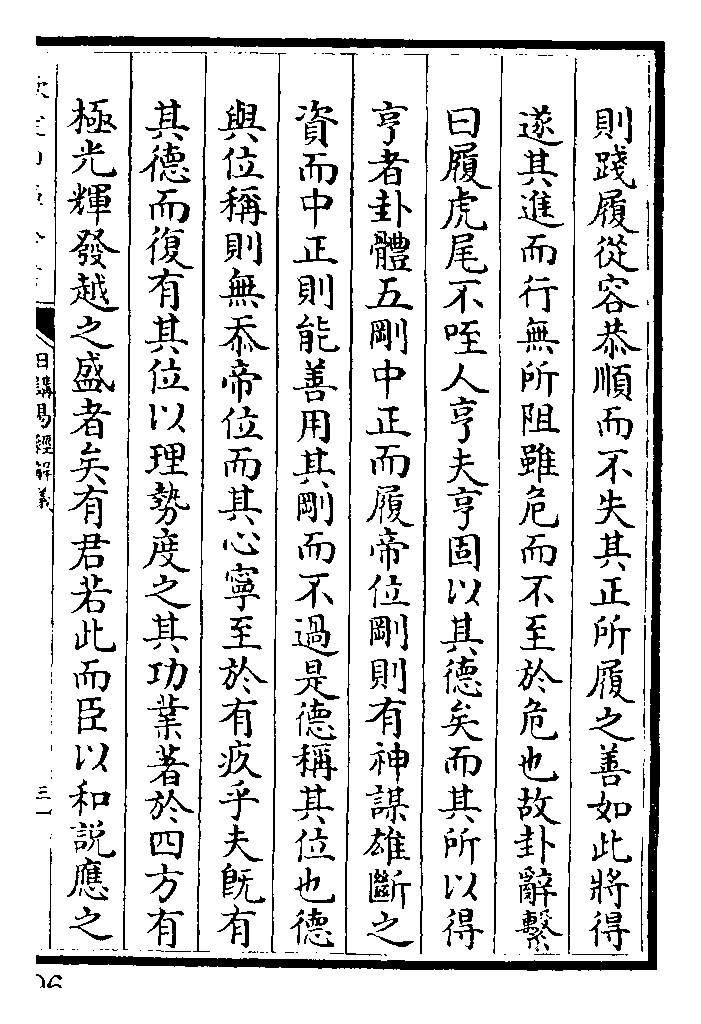 則踐履從容恭順而不失其正所履之善如此將得
遂其進而行無所阻雖危而不至於危也故卦辭繫
曰履虎尾不咥人亨夫亨固以其德矣而其所以得
亨者卦體五剛中正而履帝位剛則有神謀雄斷之
資而中正則能善用其剛而不過是德稱其位也德
與位稱則無忝帝位而其心寧至於有疚乎夫旣有
其德而復有其位以理勢度之其功業著於四方有
極光輝發越之盛者矣有君若此而臣以和説應之
日講易經解義